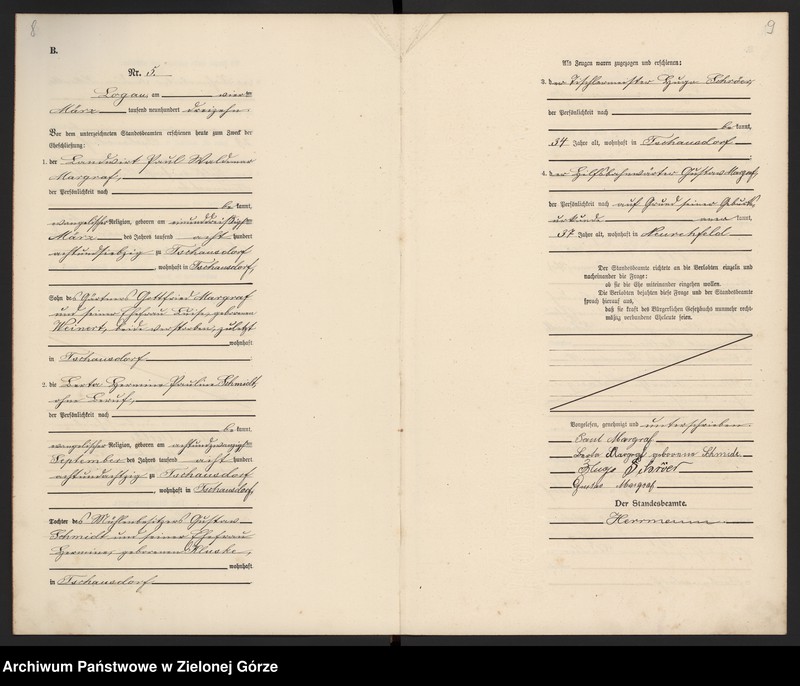 8
B.
Nr. 5.
Logau, am vier ten
März tausend neunhundert dreizehn
Vor dem unterzeichneten Standesbeamten erschienen heute zum Zweck der
Eheschließung:
1. der Landwirt Paul Waldemar
Margraf,
der Persönlichkeit nach
be kannt,
evangelischer Religion, geboren am einunddreißigsten
März des Jahres tausend acht hundert
achtundsiebzig zu Tschausdorf
, wohnhaft in Tschausdorf,
Sohn des Gärtners Gottfried Margraf
und seiner Ehefrau Luise, geborenen
Weinert, beide verstorben, zuletzt
wohnhaft
in Tschausdorf
2. die Berta Hermine Pauline Schmidt,
ohne Beruf,
der Persönlichkeit nach
be kannt,
evangelischer Religion, geboren am achtundzwanzigsten
September des Jahres tausend acht hundert
achtundachtzig zu Tschausdorf
, wohnhaft in Tschausdorf,
Tochter des Mühlenbesitzers Gustav
Schmidt und seiner Ehefrau
Hermine, geborenen Kluske,
wohnhaft
in Tschausdorf
9
Als Zeugen waren zugezogen und erschienen:
3. der Tischlermeister Hugo Schröer,
der Persönlichkeit nach
be kannt,
34 Jahre alt, wohnhaft in Tschausdorf
4. der Hilfsbahnwärter Gustav Margraf,
der Persönlichkeit nach auf Grund seiner Geburts
urkunde aner kannt,
37 Jahre alt, wohnhaft in
Der Standesbeamte richtete an die Verlobten einzeln und
nacheinander die Frage:
ob sie die Ehe miteinander eingehen wollen.
Die Verlobten bejahten diese Frage und der Standesbeamte
sprach hierauf aus,
daß sie kraft des Bürgerlichen Gesetzbuchs nunmehr recht-
mäßig verbundene Eheleute seien.
Vorgelesen, genehmigt und unterschrieben
Paul Margraf
Berta Margraf geborene Schmidt
Hugo Schröer
Gustav Margraf
Der Standesbeamte.
Herrmann
Archiwum Państwowe w Zielonej Górze